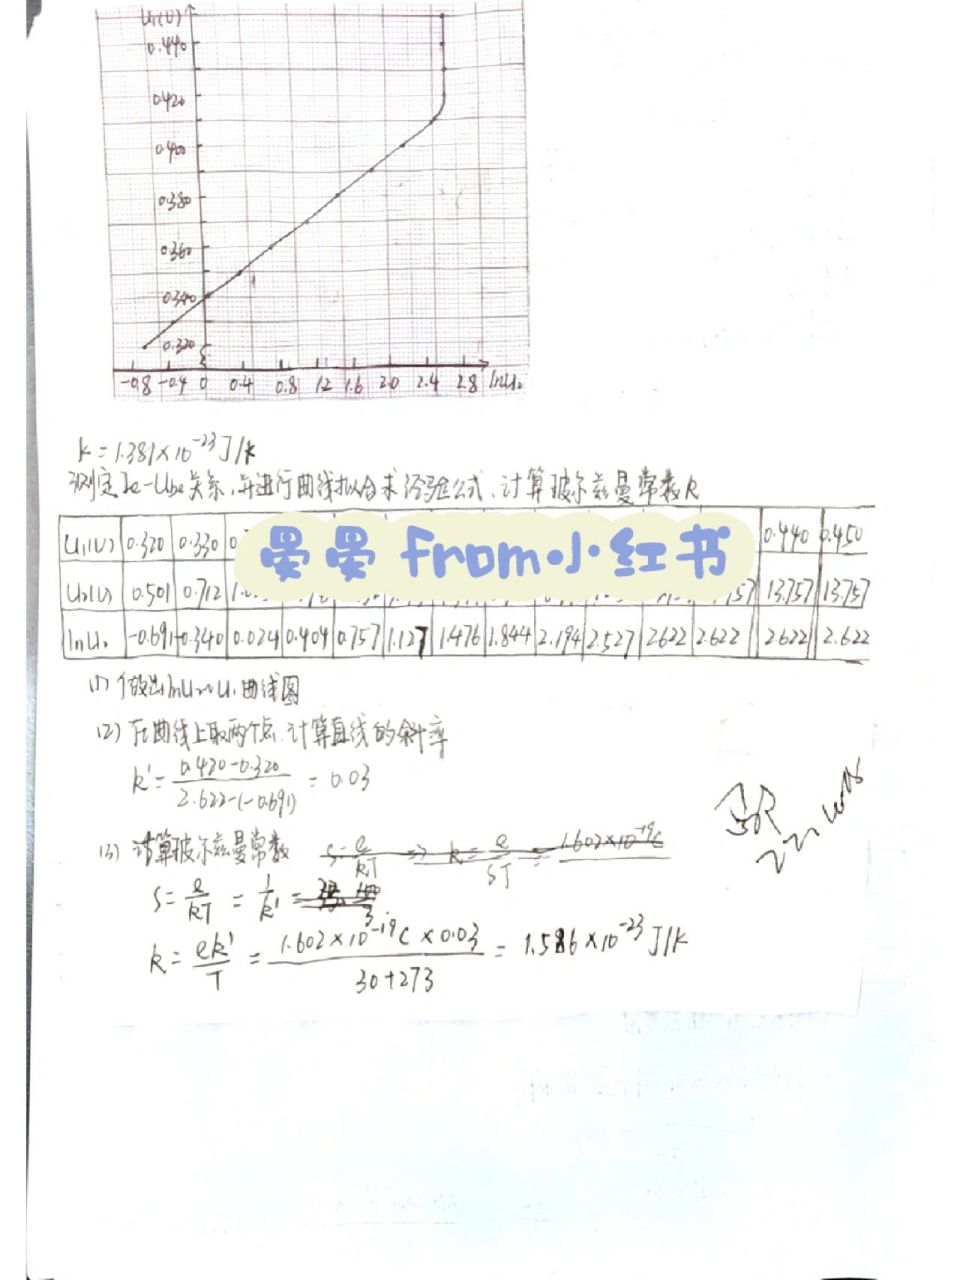 U₁(V)
0.440
0.420
0.400
0.380
0.360
0.340
0.320
-0.8 -0.4 0 0.4 0.8 1.2 1.6 2.0 2.4 2.8 lnU₂
k=1.381×10⁻²³J/k
测定Ic-Ube关系,并进行曲线拟合求经验公式,计算玻尔兹曼常数k
晏晏 From小红书
U₁(V) 0.320 0.330 0.440 0.450
U₂(V) 0.501 0.712 13.757 13.757
lnU₂ -0.691 -0.340 0.024 0.404 0.757 1.127 1.476 1.844 2.194 2.527 2.622 2.622 2.622 2.622
(1) 做出lnU₂~U₁曲线图
(2) 在曲线上取两个点,计算直线的斜率
k'= 0.420-0.320 / 2.622-(-0.691) = 0.03
(3) 计算玻尔兹曼常数 S=e/kT ⇒ k=e/ST = 1.602×10⁻¹⁹C
S=e/kT = 1/k' =
k=ek'/T = 1.602×10⁻¹⁹C×0.03 / 30+273 = 1.586×10⁻²³J/k